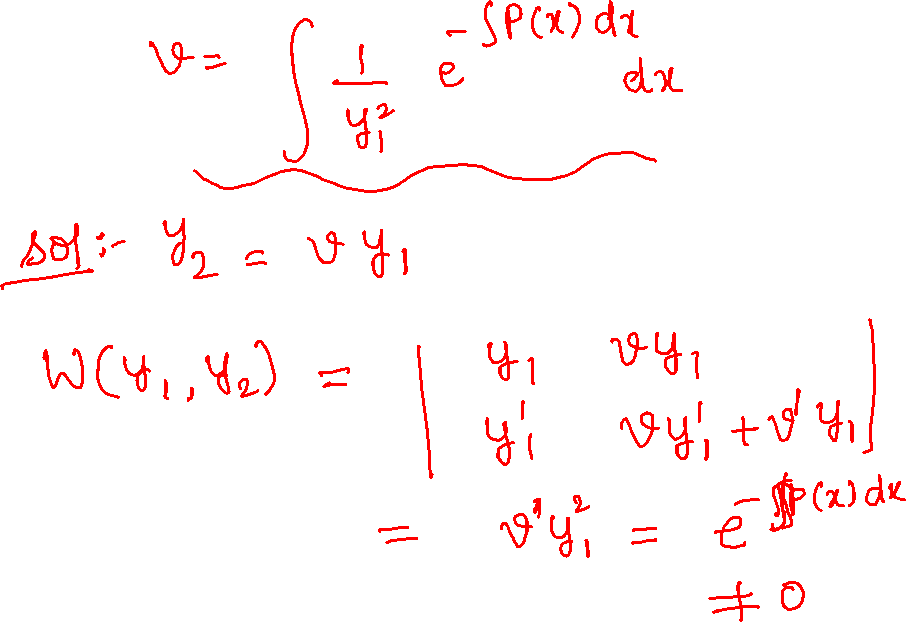 v = ∫ 1/y₁² e^{-∫P(x) dx} dx
sol :- y₂ = v y₁
W(y₁, y₂) = | y₁ vy₁ |
| y₁' vy₁' + v' y₁ |
= v' y₁² = e^{-∫P(x) dx}
≠ 0